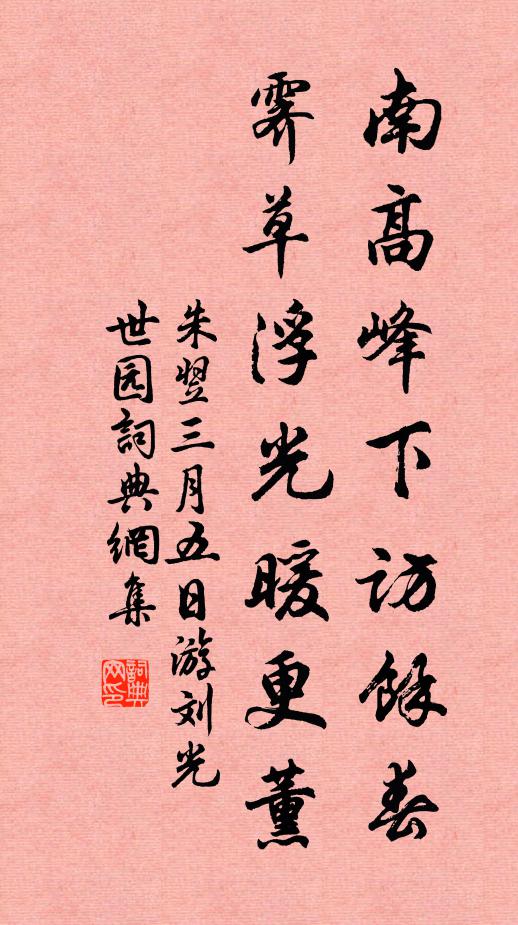 南高峰下訪餘春
霽草浮光暖更薰
朱翌三月五日游刘光
世园詞典網集
詞典
网印